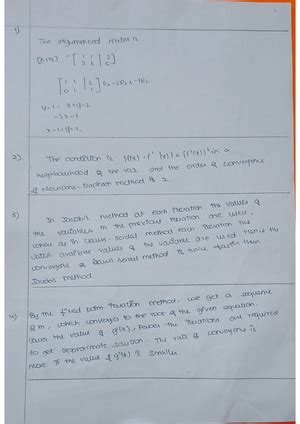 1)
The augmented matrix
[A|B] ~ [1 1 | 2
[1 1 | 2
0 1 | 1] R2 → R2 - 2R1
y=1, x+y=2
x=1, y=1.
2) The condition is |f(x) · f''(x)| < |f'(x)|² in a
neighbourhood of the root and the order of convergence
of Newtons-Raphson method is 2.
3) In Jacobi's method at each iteration the values of
the variables in the previous iteration are used,
where as in Gauss-Seidal method each iteration the
latest available values of the variables are used. Hence the
convergence of Gauss Seidal method is twice faster than
Jacobi's method.
4) By the fixed point iteration method, we get a sequence
which converges to the root of the given equation.
lower the value of g'(x), fewer the iterations are required
to get approximate solution. The rate of convergence is
more if the value of g'(x) is smaller.